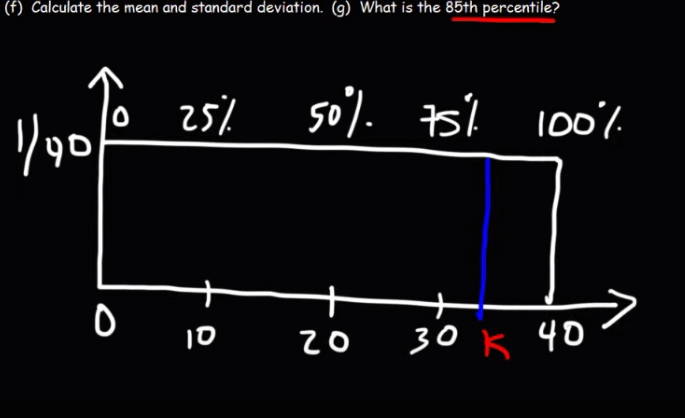 (f) Calculate the mean and standard deviation. (g) What is the 85th percentile?
0 25% 50% 75% 100%
1/40
0 10 20 30 K 40